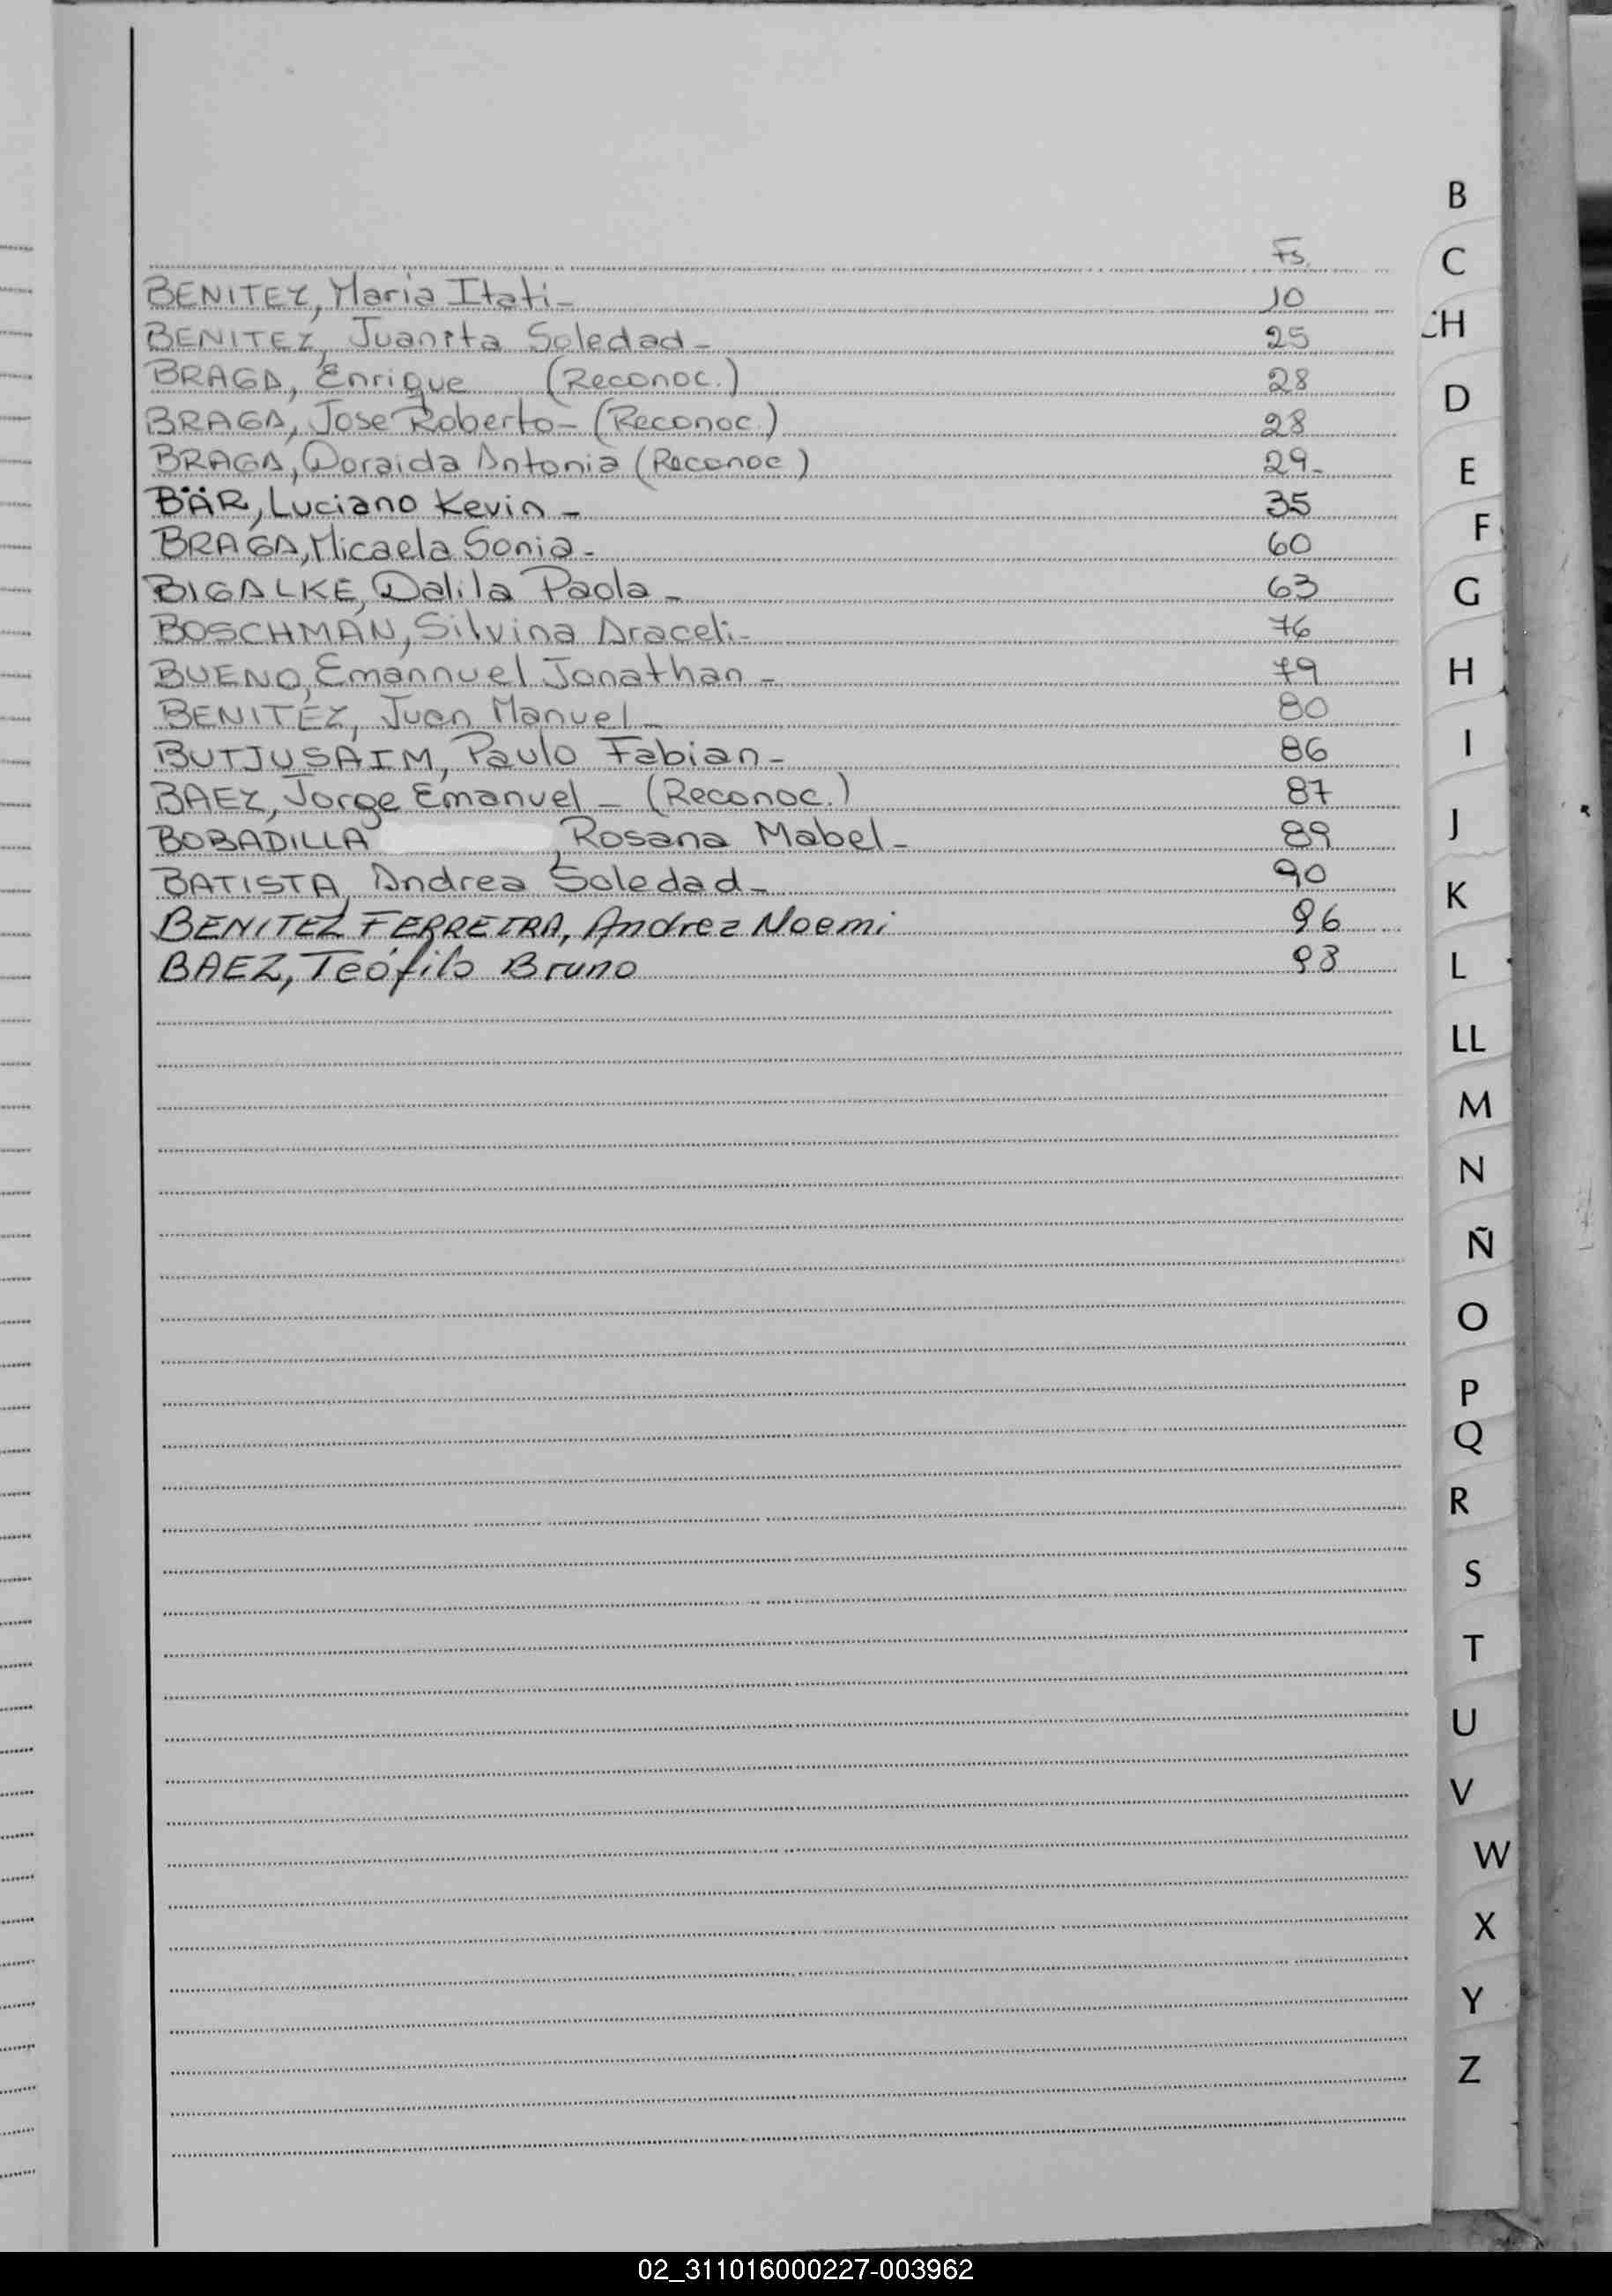 Fs.
BENITEZ, Maria Itati - 10
BENITEZ, Juanita Soledad - 25
BRAGA, Enrique (Reconoc.) 28
BRAGA, Jose Roberto - (Reconoc.) 28
BRAGA, Doraida Antonia (Reconoc) 29-
BÄR, Luciano Kevin - 35
BRAGA, Micaela Sonia - 60
BIGALKE, Dalila Paola - 63
BOSCHMAN, Silvina Araceli - 76
BUENO, Emannuel Jonathan - 79
BENITEZ, Juan Manuel - 80
BUTJUSAIM, Paulo Fabian - 86
BAEZ, Jorge Emanuel - (Reconoc.) 87
BOBADILLA , Rosana Mabel - 89
BATISTA, Andrea Soledad - 90
BENITEZ FERREIRA, Andrea Noemi 96
BAEZ, Teófilo Bruno 98
B
C
CH
D
E
F
G
H
I
J
K
L
LL
M
N
Ñ
O
P
Q
R
S
T
U
V
W
X
Y
Z
02_311016000227-003962